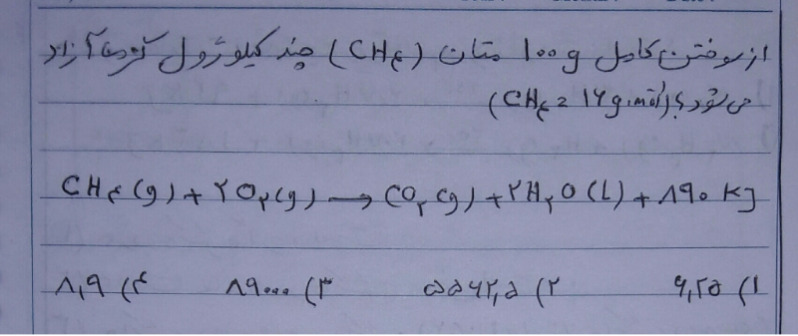 از سوختن کامل ۱۰۰g متان (CH₄) چند کیلوژول گرما آزاد
می‌شود؟ (CH₄ = ۱۶ g.mol⁻¹)
CH₄(g) + ۲O₂(g) → CO₂(g) + ۲H₂O(l) + ۸۹۰ KJ
۱) ۶,۲۵ ۲) ۵۵۶۲,۵ ۳) ۸۹۰۰۰ ۴) ۸,۹